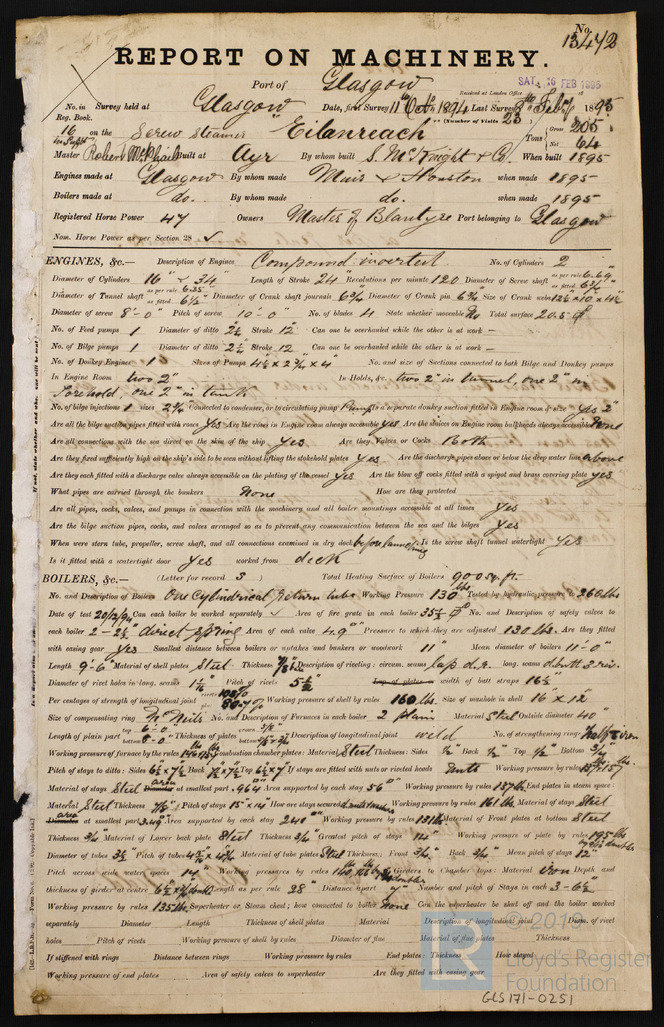 No. 13472
REPORT ON MACHINERY.
Port of Glasgow
Received at London Office SAT. 16 FEB 1895
No. in Survey held at Glasgow Date, first Survey 11th Octr 1894 Last Survey 8th Feby 1895
Reg. Book. (Number of Visits 23)
16 on the Screw Steamer "Eilanreach" Tons Gross 205 Net 64
Master Robert McPhail Built at Ayr By whom built S. McKnight & Co. When built 1895
Engines made at Glasgow By whom made Muir & Houston when made 1895
Boilers made at do. By whom made do. when made 1895
Registered Horse Power 47 Owners Master of Blantyre Port belonging to Glasgow
Nom. Horse Power as per Section 28 ✓
ENGINES, &c.— Description of Engines Compound inverted No. of Cylinders 2
Diameter of Cylinders 16" & 34" Length of Stroke 24" Revolutions per minute 120 Diameter of Screw shaft as per rule 6.69 as fitted 6¾"
Diameter of Tunnel shaft as per rule 6.35 as fitted 6½" Diameter of Crank shaft journals 6¾" Diameter of Crank pin 6¾" Size of Crank webs
Diameter of screw 8'-0" Pitch of screw 10'-0" No. of blades 4 State whether moveable No Total surface 20.5
No. of Feed pumps 1 Diameter of ditto 2½ Stroke 12" Can one be overhauled while the other is at work —
No. of Bilge pumps 1 Diameter of ditto 2½ Stroke 12" Can one be overhauled while the other is at work —
No. of Donkey Engines 1 Sizes of Pumps No. and size of Suctions connected to both Bilge and Donkey pumps
In Engine Room two 2" In Holds, &c. two 2" in tunnel, one 2" in
Forehold, one 2" in tank
No. of bilge injections 1 sizes 2¾" Connected to condenser, or to circulating pump Pump Is a separate donkey suction fitted in Engine room & size yes 2"
Are all the bilge suction pipes fitted with roses yes Are the roses in Engine room always accessible yes Are the sluices on Engine room bulkheads always accessible None
Are all connections with the sea direct on the skin of the ship yes Are they Valves or Cocks Both
Are they fixed sufficiently high on the ship's side to be seen without lifting the stokehold plates yes Are the discharge pipes above or below the deep water line above
Are they each fitted with a discharge valve always accessible on the plating of the vessel yes Are the blow off cocks fitted with a spigot and brass covering plate yes
What pipes are carried through the bunkers None How are they protected
Are all pipes, cocks, valves, and pumps in connection with the machinery and all boiler mountings accessible at all times yes
Are the bilge suction pipes, cocks, and valves arranged so as to prevent any communication between the sea and the bilges yes
When were stern tube, propeller, screw shaft, and all connections examined in dry dock before launching Is the screw shaft tunnel watertight yes
Is it fitted with a watertight door yes worked from deck
BOILERS, &c.— (Letter for record S) Total Heating Surface of Boilers 900 sq. ft.
No. and Description of Boilers One Cylindrical return tube Working Pressure 130 lbs Tested by hydraulic pressure to 260 lbs
Date of test 20/12/94 Can each boiler be worked separately ✓ Area of fire grate in each boiler No. and Description of safety valves to
each boiler 2 - 2½" direct spring Area of each valve 4.9" Pressure to which they are adjusted 130 lbs. Are they fitted
with easing gear yes Smallest distance between boilers or uptakes and bunkers or woodwork 11" Mean diameter of boilers 11'-0"
Length 9'-6" Material of shell plates Steel Thickness Description of riveting: circum. seams lap d.r. long. seams d. butt 3 riv.
Diameter of rivet holes in long. seams Pitch of rivets Lap of plates or width of butt straps
Per centages of strength of longitudinal joint Working pressure of shell by rules 160 lbs. Size of manhole in shell 16" x 12"
Size of compensating ring McNeils No. and Description of Furnaces in each boiler 2 plain Material Steel Outside diameter 40"
Length of plain part top 6'-0 bottom 8'-0" Thickness of plates Description of longitudinal joint weld No. of strengthening rings
Working pressure of furnace by the rules Combustion chamber plates: Material Steel Thickness: Sides Back Top Bottom
Pitch of stays to ditto: Sides Back Top If stays are fitted with nuts or riveted heads Nuts Working pressure by rules
Material of stays Steel Diameter at smallest part .964 Area supported by each stay 56" Working pressure by rules 137 lbs End plates in steam space:
Material Steel Thickness Pitch of stays 15" x 14" How are stays secured Working pressure by rules 161 lbs Material of stays Steel
Diameter at smallest part Area supported by each stay 240" Working pressure by rules 131 lbs Material of Front plates at bottom Steel
Thickness ¾" Material of Lower back plate Steel Thickness ¾" Greatest pitch of stays Working pressure of plate by rules 195 lbs
Diameter of tubes Pitch of tubes Material of tube plates Steel Thickness: Front ¾" Back ¾" Mean pitch of stays
Pitch across wide water spaces 14 Working pressures by rules Girders to Chamber tops: Material iron Depth and
thickness of girder at centre Length as per rule 28" Distance apart 7" Number and pitch of Stays in each 3 - 6½"
Working pressure by rules 135 lbs. Superheater or Steam chest; how connected to boiler None Can the superheater be shut off and the boiler worked
separately Diameter Length Thickness of shell plates Material Description of longitudinal joint Diam. of rivet
holes Pitch of rivets Working pressure of shell by rules Diameter of flue Material of flue plates Thickness
If stiffened with rings Distance between rings Working pressure by rules End plates: Thickness How stayed
Working pressure of end plates Area of safety valves to superheater Are they fitted with easing gear
© 2019
Lloyd's Register
Foundation
GLS171-0251